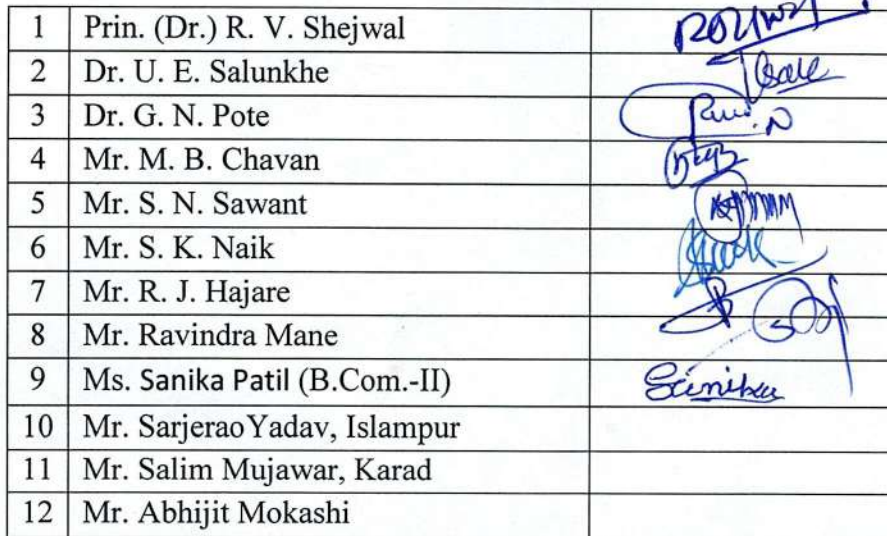 1 Prin. (Dr.) R. V. Shejwal
2 Dr. U. E. Salunkhe
3 Dr. G. N. Pote
4 Mr. M. B. Chavan
5 Mr. S. N. Sawant
6 Mr. S. K. Naik
7 Mr. R. J. Hajare
8 Mr. Ravindra Mane
9 Ms. Sanika Patil (B.Com.-II) Sanika
10 Mr. SarjeraoYadav, Islampur
11 Mr. Salim Mujawar, Karad
12 Mr. Abhijit Mokashi